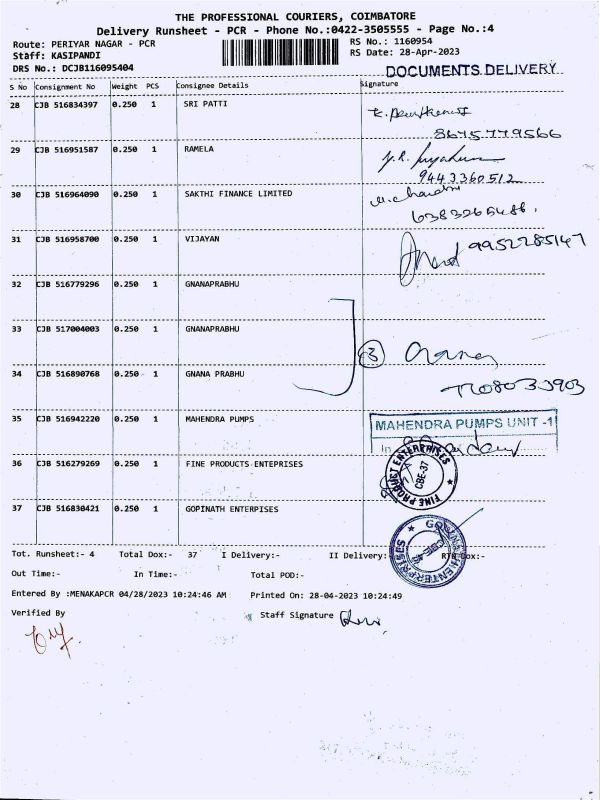 THE PROFESSIONAL COURIERS, COIMBATORE
Delivery Runsheet - PCR - Phone No.:0422-3505555 - Page No.:4
Route: PERIYAR NAGAR - PCR
RS No.: 1160954
Staff: KASIPANDI
RS Date: 28-Apr-2023
DRS No.: DCJB1160954​04
DOCUMENTS DELIVERY
S No Consignment No Weight PCS Consignee Details Signature
28 CJB 516834397 0.250 1 SRI PATTI
8675779566
29 CJB 516951587 0.250 1 RAMELA
9443360512
30 CJB 516964090 0.250 1 SAKTHI FINANCE LIMITED
6383265486.
31 CJB 516958700 0.250 1 VIJAYAN
9952285147
32 CJB 516779296 0.250 1 GNANAPRABHU
33 CJB 517004003 0.250 1 GNANAPRABHU
3
34 CJB 516890768 0.250 1 GNANA PRABHU
35 CJB 516942220 0.250 1 MAHENDRA PUMPS
MAHENDRA PUMPS UNIT -1
36 CJB 516279269 0.250 1 FINE PRODUCTS ENTEPRISES
FINE PRODUCT ENTERPRISES
CBE-37
37 CJB 516830421 0.250 1 GOPINATH ENTERPISES
Tot. Runsheet:- 4 Total Dox:- 37 I Delivery:- II Delivery:- RTN Dox:-
Out Time:- In Time:- Total POD:-
Entered By :MENAKAPCR 04/28/2023 10:24:46 AM Printed On: 28-04-2023 10:24:49
Verified By
Staff Signature